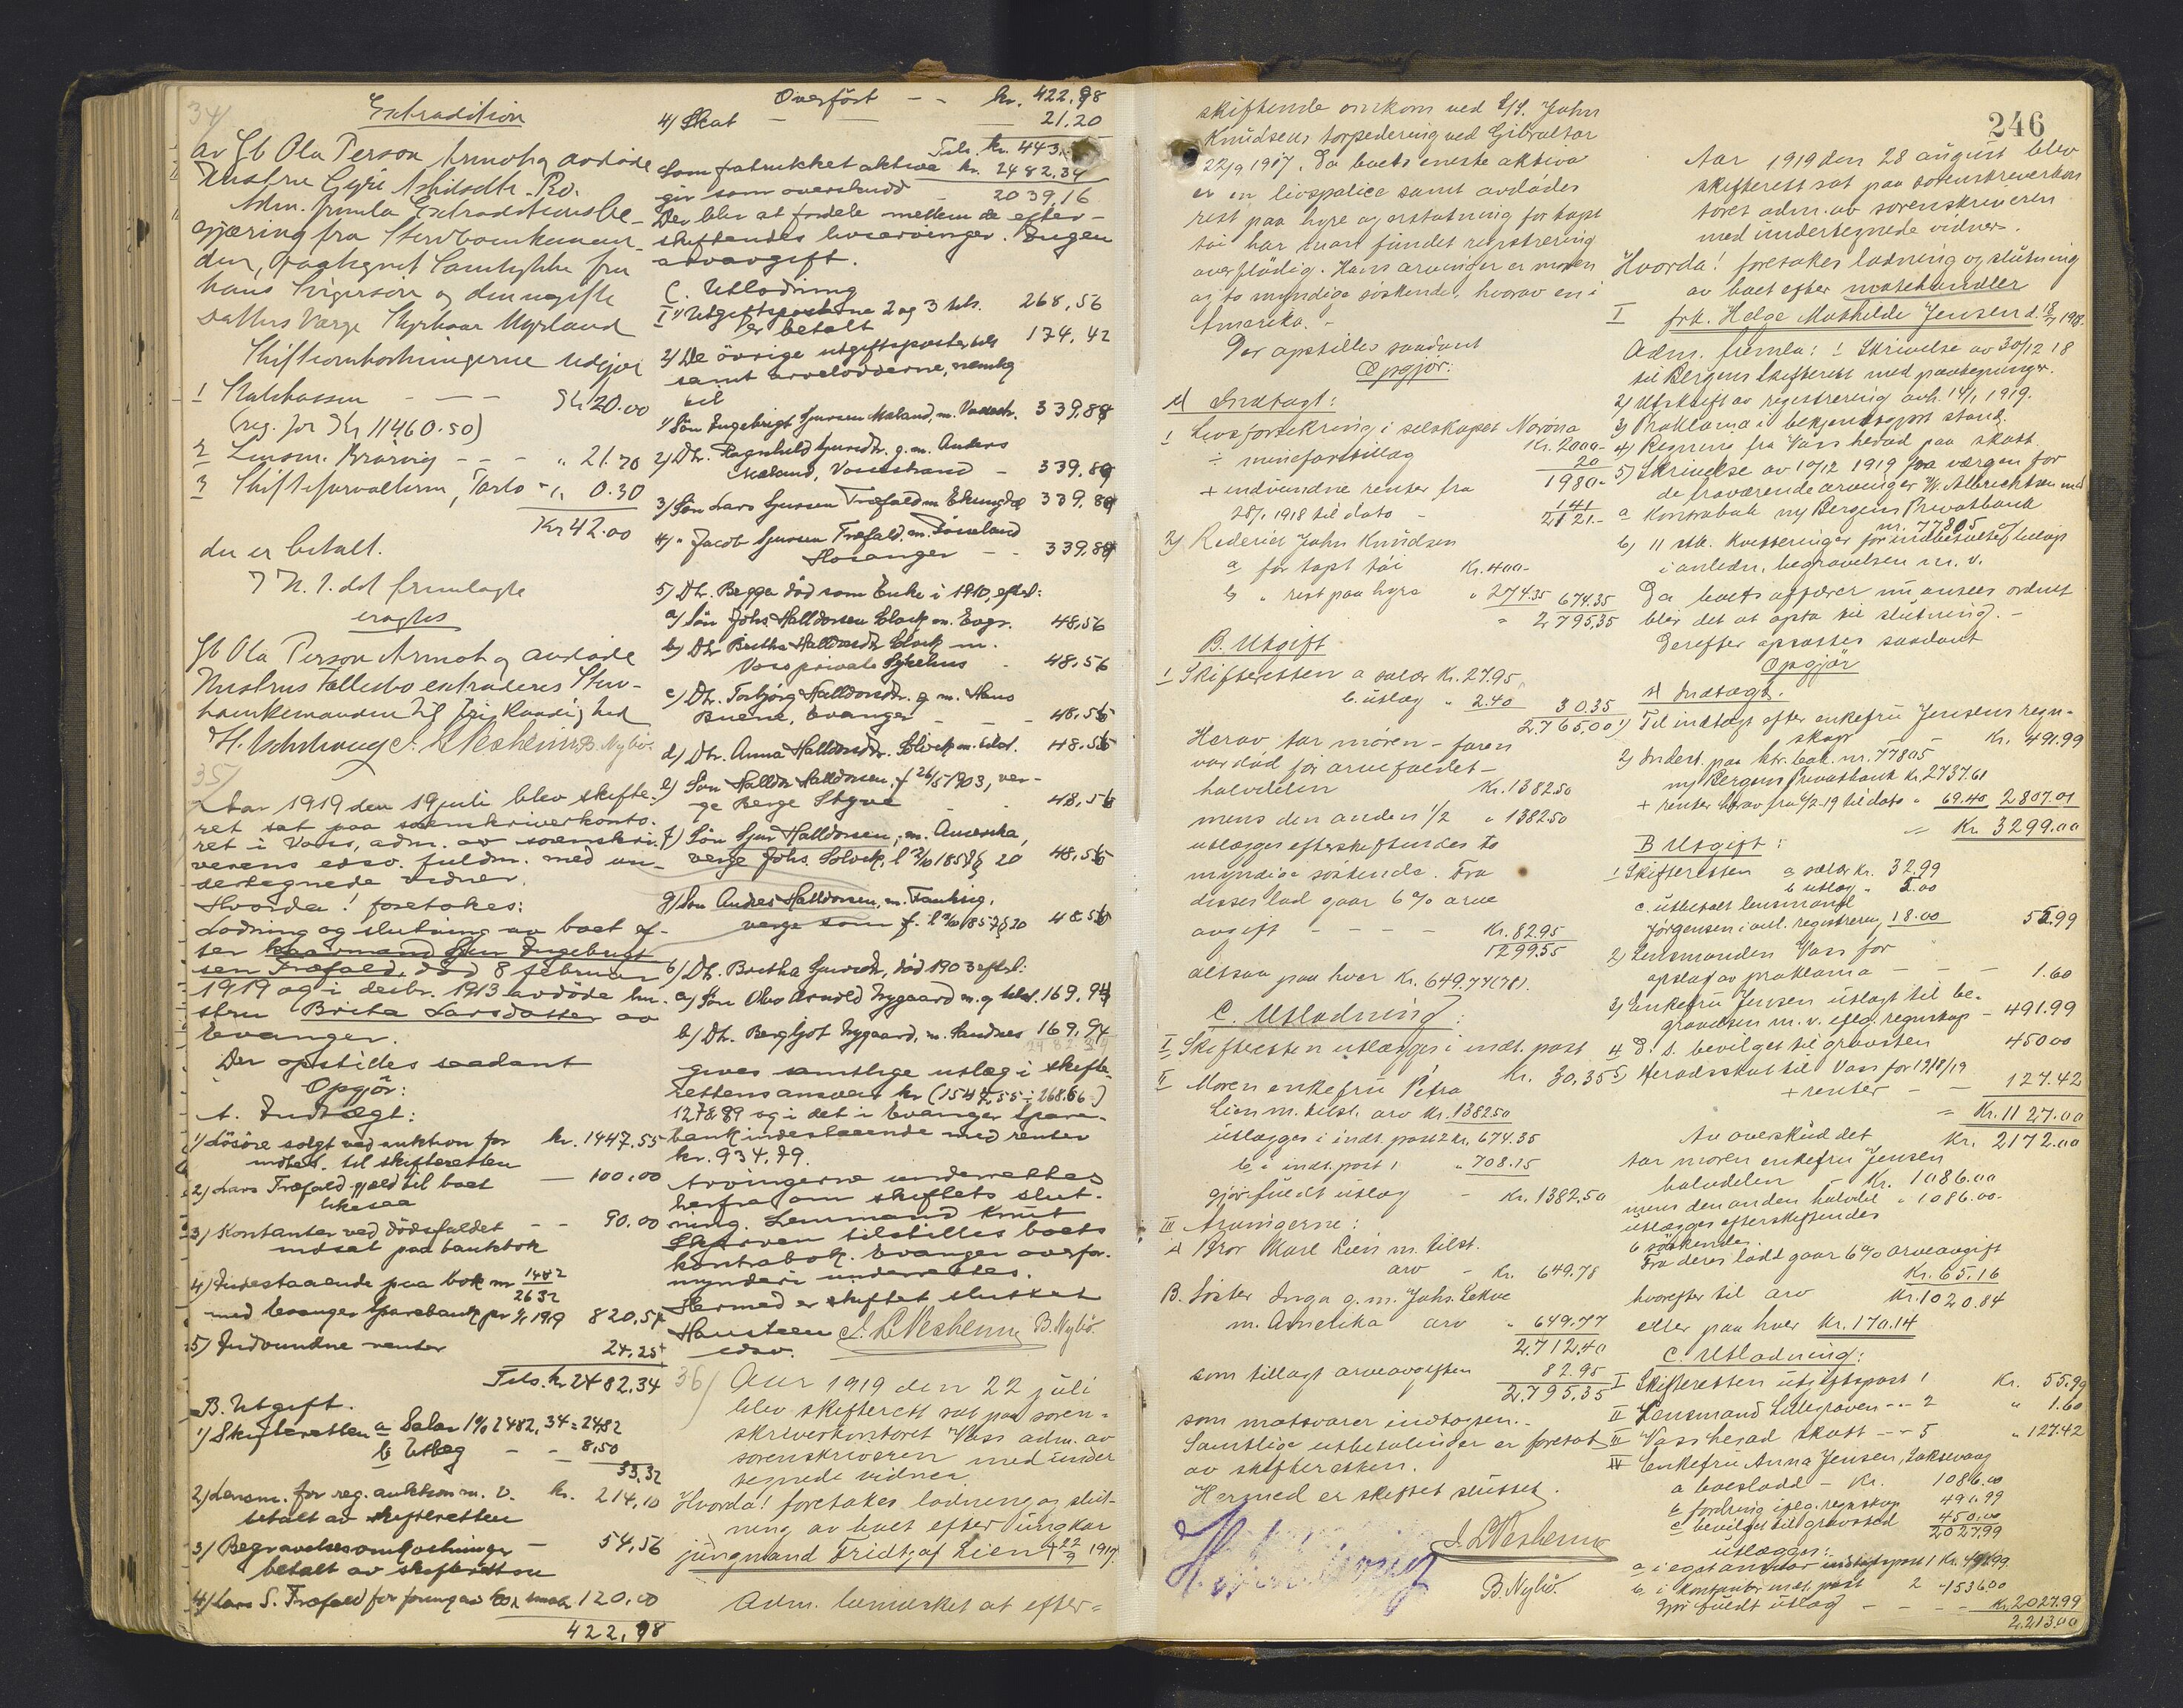 34/
Extradition
av Gb Ola Person Armot og avdøde
Hustru Gyri Nilsdtr. Ro.
Adm. fremla Extraditionsbe-
gjæring fra Stervboenkeman-
den, paategnet Samtykke fra
hans Svigersøn og den ugifte
Datters Værge Styrkaar Myrland
Skifteomkostningerne udgjør
1 Statskassen - - - Kr 20.00
(reg. for Kr 11460.50)
2 Lensm. Brørvig - - - " 21.70
3 Skifteforvalteren, Porto - " 0.30
Kr 42.00
der er betalt.
I H. t. det fremlagte
eragtes
Gb Ola Person Armot og avdøde
Hustrus Fællesbo extraderes Sterv-
boenkemanden til fri Raadighed
J. L. Nesheim B. Nybø.
35/
Aar 1919 den 19 juli blev skifte-
ret sat paa sorenskriverkonto-
ret i Voss, adm. av sorenskri-
verens edsv. fuldm. med un-
dertegnede vidner.
Hvorda! foretokes:
Lodning og slutning av boet ef-
ter kaarmand Sjur Ingebrigt-
sen Træfald, død 8 februar
1919 og i decbr. 1913 avdøde hu-
stru Brita Larsdatter av
Evanger.
Der opstilles saadant
Opgjør:
A. Indtægt:
1) Løsøre solgt ved auktion for kr. 1447.55
indbet. til skifteretten
2) Lars Træfald gjæld til boet — 100.00
likesaa
3) Kontanter ved dødsfaldet - - 90.00
indsat paa bankbok
4) Indestaaende paa bok nr 1482
2632
med Evanger Sparebank pr 1/1 1919 820,54
5) Indvundne renter 24.25
Tils. kr 2482.34
B. Utgift.
1) Skifteretten a Salær 1% 2482,34 = 24,82
b Utlæg - - 8,50
33,32
2) Lensm. for reg. auktion m. v. kr. 214,10
betalt av skifteretten
3) Begravelsesomkostninger - 54,56
betalt av skifteretten
4) Lars S. Træfald for foring av 120.00
422,98
Overført - - kr. 422.98
4) Skat - — — 21.20
Tils. kr. 443
som fratrukket aktiva kr. 2482.34
gir som overskudd - 2039,16
Der blir at fordele mellem de efter-
skiftendes livsarvinger. Ingen
arveavgift.
C. Utlodning
I 1) Utgiftsposterne 2 og 3 tils. 268,56
er betalt
2) De øvrige utgiftsposter tils 174,42
samt arvelodderne, nemlig
til
1) Søn Ingebrigt Sjursen Mæland, m. Vossestr. 339.84
2) Dtr. Ragnhild Sjursdtr. g. m. Anders
Mæland, Vossestrand - 339.84
3) Søn Lars Sjursen Træfald m. Evanger 339.84
4) " Jacob Sjursen Træfald, m.
Hosanger - - 339.84
5) Dtr. Begga død som Enke i 1910, efterl:
a) Søn Johs Halldorsen Sløck m. Evgr. 48,56
b) Dtr Britha Halldorsdtr Sløck m.
Voss private Sykehus - 48.56
c) Dtr. Torbjørg Halldorsdtr. g. m. Hans
Buene, Evanger - - 48.55
d) Dtr. Anna Halldorsdtr. Sløck m. tilst. 48.55
e) Søn Halldor Halldorsen, f 26/5 1903, ver-
ge Berge Styve - - 48.55
f) Søn Sjur Halldorsen, m. Amerika,
verge Johs. Sløck, l 2/10 1857 § 20 48,55
g) Søn Andres Halldorsen, m.
verge som f. l 2/10 1857 § 20 48.55
6) Dtr. Britha Sjursdtr, død 1903 efterl:
a) Søn Olav Arnold Nygaard m. g tilst. 169.94
b) Dtr. Bergljot Nygaard, m. Sandnes 169,94
gives samtlige utlæg i skifte-
rettens ansvar kr (1547,55 ÷ 268.66:)
1278.89 og i det i Evanger Spare-
bank indestaaende med renter
kr. 934.79.
Arvingerne underrettes
herfra om skiftets slut-
ning. Lensmand Knut
Skjerven tilstilles boets
kontrabok. Evanger overfor-
mynderi underrettes.
Hermed er skiftet sluttet
Hansteen J. L. Nesheim B. Nybø.
edsv.
36/ Aar 1919 den 22 juli
blev skifterett sat paa soren-
skriverkontoret Voss adm. av
sorenskriveren med under
tegnede vidner
Hvorda! foretokes lodning og slut-
ning av boet efter ungkar
jungmand Fridtjof Lien † 22/9 1917.
Adm. bemerket at efter-
246
skiftende omkom ved S/S. John
Knudsens torpedering ved Gibraltar
22/9 1917. Da boets eneste aktiva
er en livspolice samt avdødes
rest paa hyre og erstatning for tapt
tøi har man fundet registrering
overflødig. Hans arvinger er moren
og to myndige søskende, hvorav en i
Amerika. -
Der opstilles saadant
Opgjør:
A Indtægt:
1 Livsforsikring i selskapet Norøna
Kr. 2000-
÷ minefaretillæg 20
1980-
+ indvundne renter fra
28/1 1918 til dato - 141
2121.-
2) Rederiet John Knudsen
a for tapt tøi Kr. 400-
b " rest paa hyre " 274.35 674.35
" 2795,35
B. Utgift
1 Skifteretten a salær Kr. 27.95
b. utlæg " 2.40 30.35
2765,00
Herav tar moren - faren
var død før arvefaldet -
halvdelen Kr. 1382.50
mens den anden 1/2 " 1382.50
utlægges efterskiftendes to
myndige søskende. Fra
disses lod gaar 6% arve
avgift - - - - Kr. 82.95
1299.55
altsaa paa hver Kr. 649.77(78).
C. Utlodning:
I. Skifteretten utlægges i indt. post
Kr. 30.35
II Moren enkefru Petra
Lien m. tilst. arv Kr. 1382.50
utlægges i indt. post 2 kr. 674.35
b i indt. post 1 " 708.15
gjør fuldt utlæg - Kr. 1382.50
III Arvingerne:
A Bror Karl Lien m. tilst.
arv - Kr. 649.78
B. Søster Inga g. m. Johs. Lekve
m. Amerika arv " 649.77
2712.40
som tillagt arveavgiften 82.95
2795.35
som motsvarer indtægten.-
Samtlige utbetalinger er foretat
av skifteretten.
Hermed er skiftet sluttet.
J. L. Nesheim
B. Nybø.
Aar 1919 den 28 august blev
skifterett sat paa sorenskriverkon
toret adm. av sorenskriveren
med undertegnede vidner.
Hvorda! foretokes lodning og slutning
av boet efter motehandler
I frk. Helga Mathilde Jensen d. 18/7 1918.
Adm. fremla: 1 Skrivelse av 30/12 18
til Bergens skifterett med paategninger.
2) Utskrift av registrering avh. 14/1 1919.
3) Proklama i bekjendtgjort stand.
4) Regning fra Voss herad paa skatt
5) Skrivelse av 10/12 1919 fra værgen for
de fraværende arvinger W. Albrechtsen med
a Kontrabok ny Bergens Privatbank
nr. 77805
b) 11 stk. kvitteringer for indbetalte beløp
i anledn. begravelsen m. v.
Da boets affærer nu ansees ordnet
blev det at opta til slutning. -
Derefter opsattes saadant
Opgjør
A Indtægt.
1) Til indtægt efter enkefru Jensens regn-
skap Kr. 491.99
2) Indest. paa ktr. bok nr. 77805
ny Bergens Privatbank Kr. 2737.61
+ renter herav fra 1/2 19 til dato " 69.40 2807.01
= Kr 3299.00
B Utgift:
1 Skifteretten a salær kr. 32.99
b utlæg " 5.00
c. utbetalt lensmand
Jørgensen i anl. registrering 18.00 55.99
2) Lensmanden Voss for
opslag av proklama - - - 1.60
3) Enkefru Jensen utlagt til be-
gravelsen m. v. eflg. regnskap - 491.99
4 D. s. bevilget til gravsten 450.00
5) Heradsskat til Voss for 1918/19
+ renter — 127.42
= Kr. 1127.00
Av overskuddet Kr. 2172.00
tar moren enkefru Jensen
halvdelen - Kr. 1086.00
mens den anden halvdel " 1086.00-
utlægges efterskiftendes
6 søskende.
Fra deres lodd gaar 6% arveavgift
Kr. 65.16
hvorefter til arv Kr. 1020.84
eller paa hver Kr. 170.14
C. Utlodning:
I Skifteretten utgiftspost 1 Kr. 55.99
II Lensmand Lillegraven - - 2 " 1.60
III Voss herad skatt - - 5 " 127.42
IV Enkefru Anna Jensen, Laksevaag
a boeslodd - Kr. 1086.00
b fordring iflg. regnskap 491.99
c bevilget til gravsted 450.00
2027.99
utlægges:
a i eget ansvar indtægtspost 1 Kr. 491.99
b i kontanter indt. post 2 " 1536.00
gjør fuldt utlæg - - - - Kr. 2027.99
2.213.00